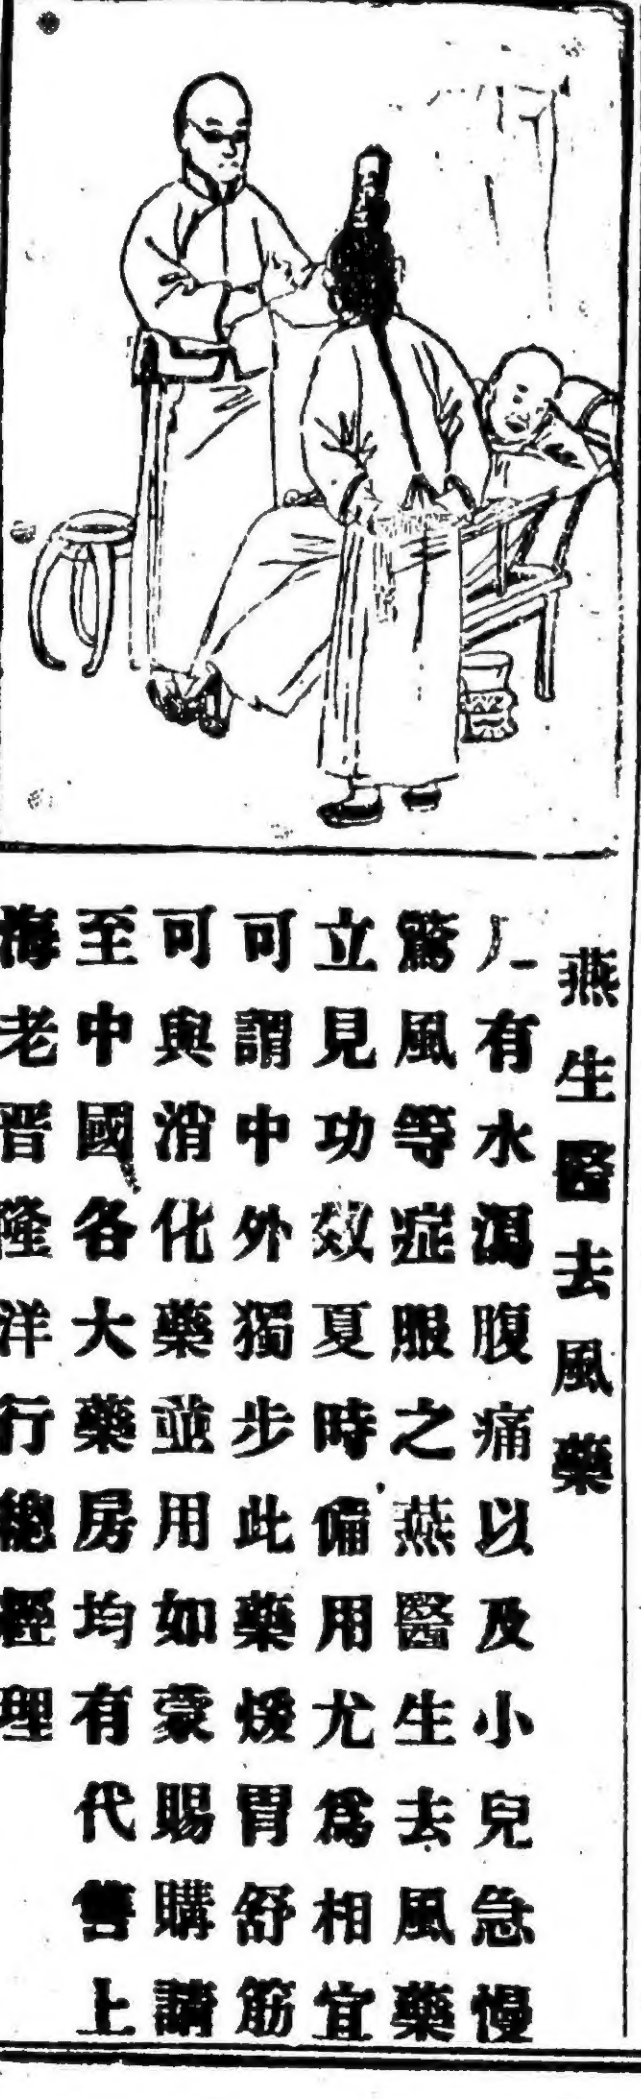 燕生醫去風藥
凡有水瀉腹痛以及小兒急慢
驚風等症服之燕醫生去風藥
立見功效夏時備用尤爲相宜
可謂中外獨步此藥煖胃舒筋
可與消化藥並用如蒙賜購請
至中國各大藥房均有代售上
海老晋隆洋行總經理